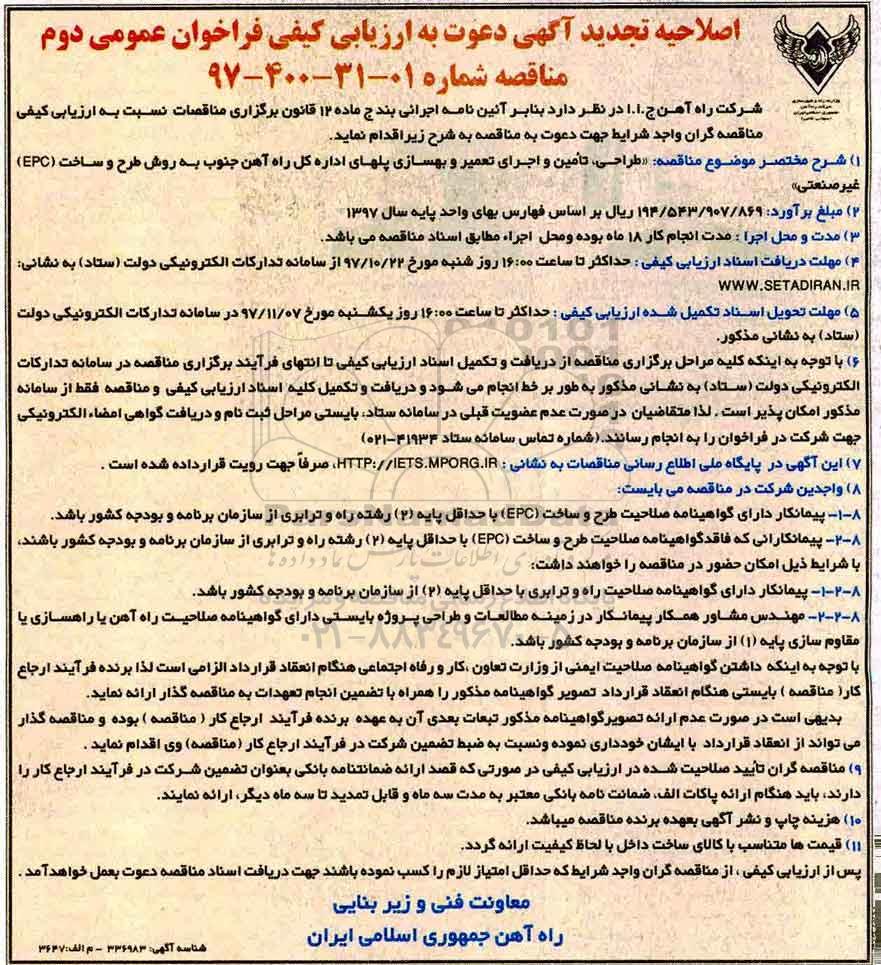 اصلاحیه تجدید آگهی دعوت به ارزیابی کیفی فراخوان عمومی دوم
مناقصه شماره ۰۱-۳۱-۴۰۰-۹۷
شرکت راه آهن ج.ا.ا در نظر دارد بنابر آئین نامه اجرائی بند ج ماده ۱۲ قانون برگزاری مناقصات نسبت به ارزیابی کیفی
مناقصه گران واجد شرایط جهت دعوت به مناقصه به شرح زیر اقدام نماید.
۱) شرح مختصر موضوع مناقصه: «طراحی، تأمین و اجرای تعمیر و بهسازی پلهای اداره کل راه آهن جنوب به روش طرح و ساخت (EPC)
غیرصنعتی»
۲) مبلغ برآورد: ۱۹۴/۵۴۳/۹۰۷/۸۶۹ ریال بر اساس فهارس بهای واحد پایه سال ۱۳۹۷
۳) مدت و محل اجرا : مدت انجام کار ۱۸ ماه بوده ومحل اجراء مطابق اسناد مناقصه می باشد.
۴) مهلت دریافت اسناد ارزیابی کیفی : حداکثر تا ساعت ۱۶:۰۰ روز شنبه مورخ ۹۷/۱۰/۲۲ از سامانه تدارکات الکترونیکی دولت (ستاد) به نشانی:
WWW.SETADIRAN.IR
۵) مهلت تحویل اسناد تکمیل شده ارزیابی کیفی : حداکثر تا ساعت ۱۶:۰۰ روز یکشنبه مورخ ۹۷/۱۱/۰۷ در سامانه تدارکات الکترونیکی دولت
(ستاد) به نشانی مذکور.
۶) با توجه به اینکه کلیه مراحل برگزاری مناقصه از دریافت و تکمیل اسناد ارزیابی کیفی تا انتهای فرآیند برگزاری مناقصه در سامانه تدارکات
الکترونیکی دولت (ستاد) به نشانی مذکور به طور بر خط انجام می شود و دریافت و تکمیل کلیه اسناد ارزیابی کیفی و مناقصه فقط از سامانه
مذکور امکان پذیر است . لذا متقاضیان در صورت عدم عضویت قبلی در سامانه ستاد، بایستی مراحل ثبت نام و دریافت گواهی امضاء الکترونیکی
جهت شرکت در فراخوان را به انجام رسانند.(شماره تماس سامانه ستاد ۴۱۹۳۴-۰۲۱)
۷) این آگهی در پایگاه ملی اطلاع رسانی مناقصات به نشانی : HTTP://IETS.MPORG.IR، صرفاً جهت رویت قرارداده شده است .
۸) واجدین شرکت در مناقصه می بایست:
۸-۱- پیمانکار دارای گواهینامه صلاحیت طرح و ساخت (EPC) با حداقل پایه (۲) رشته راه و ترابری از سازمان برنامه و بودجه کشور باشد.
۸-۲- پیمانکارانی که فاقدگواهینامه صلاحیت طرح و ساخت (EPC) با حداقل پایه (۲) رشته راه و ترابری از سازمان برنامه و بودجه کشور باشند،
با شرایط ذیل امکان حضور در مناقصه را خواهند داشت:
۸-۲-۱- پیمانکار دارای گواهینامه صلاحیت راه و ترابری با حداقل پایه (۲) از سازمان برنامه و بودجه کشور باشد.
۸-۲-۲- مهندس مشاور همکار پیمانکار در زمینه مطالعات و طراحی پروژه بایستی دارای گواهینامه صلاحیت راه آهن یا راهسازی یا
مقاوم سازی پایه (۱) از سازمان برنامه و بودجه کشور باشد.
با توجه به اینکه داشتن گواهینامه صلاحیت ایمنی از وزارت تعاون ،کار و رفاه اجتماعی هنگام انعقاد قرارداد الزامی است لذا برنده فرآیند ارجاع
کار( مناقصه ) بایستی هنگام انعقاد قرارداد تصویر گواهینامه مذکور را همراه با تضمین انجام تعهدات به مناقصه گذار ارائه نماید.
بدیهی است در صورت عدم ارائه تصویرگواهینامه مذکور تبعات بعدی آن به عهده برنده فرآیند ارجاع کار ( مناقصه ) بوده و مناقصه گذار
می تواند از انعقاد قرارداد با ایشان خودداری نموده ونسبت به ضبط تضمین شرکت در فرآیند ارجاع کار (مناقصه) وی اقدام نماید .
۹) مناقصه گران تأیید صلاحیت شده در ارزیابی کیفی در صورتی که قصد ارائه ضمانتنامه بانکی بعنوان تضمین شرکت در فرآیند ارجاع کار را
دارند، باید هنگام ارائه پاکات الف، ضمانت نامه بانکی معتبر به مدت سه ماه و قابل تمدید تا سه ماه دیگر، ارائه نمایند.
۱۰) هزینه چاپ و نشر آگهی بعهده برنده مناقصه میباشد.
۱۱) قیمت ها متناسب با کالای ساخت داخل با لحاظ کیفیت ارائه گردد.
پس از ارزیابی کیفی ، از مناقصه گران واجد شرایط که حداقل امتیاز لازم را کسب نموده باشند جهت دریافت اسناد مناقصه دعوت بعمل خواهدآمد .
معاونت فنی و زیر بنایی
راه آهن جمهوری اسلامی ایران
شناسه آگهی: ۳۳۶۹۸۳ - م الف: ۳۶۴۷